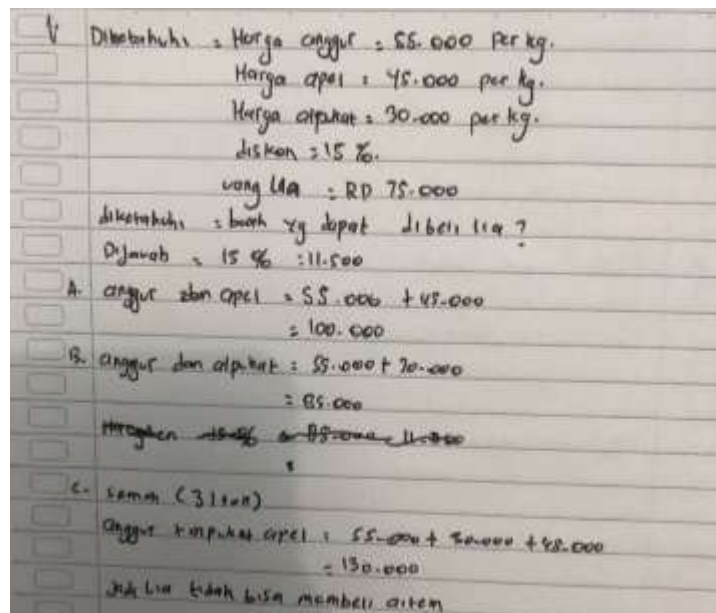 1. Diketahuhi : Harga anggur : 55.000 per kg.
Harga apel : 45.000 per kg.
Harga alpukat : 30.000 per kg.
diskon : 15 %.
uang Lia : RP 75.000
diketahuhi : buah yg dapat dibeli lia ?
Dijawab : 15 % : 11.500
A. anggur dan apel : 55.000 + 45.000
= 100.000
B. anggur dan alpukat : 55.000 + 30.000
= 85.000
15 % = 85.000 - 11.500
=
C. semua (3 item)
anggur + alpukat apel : 55.000 + 30.000 + 45.000
= 130.000
jadi Lia tidak bisa membeli aitem